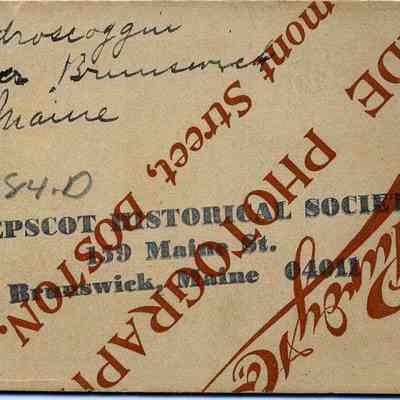 droscoggin
er Brunswick
Maine
84.D
EPSCOT HISTORICAL SOCIE
159 Maine St.
Brunswick, Maine 04011
DE
mont Street, BOSTON.
PHOTOGRAPH
Purdy &